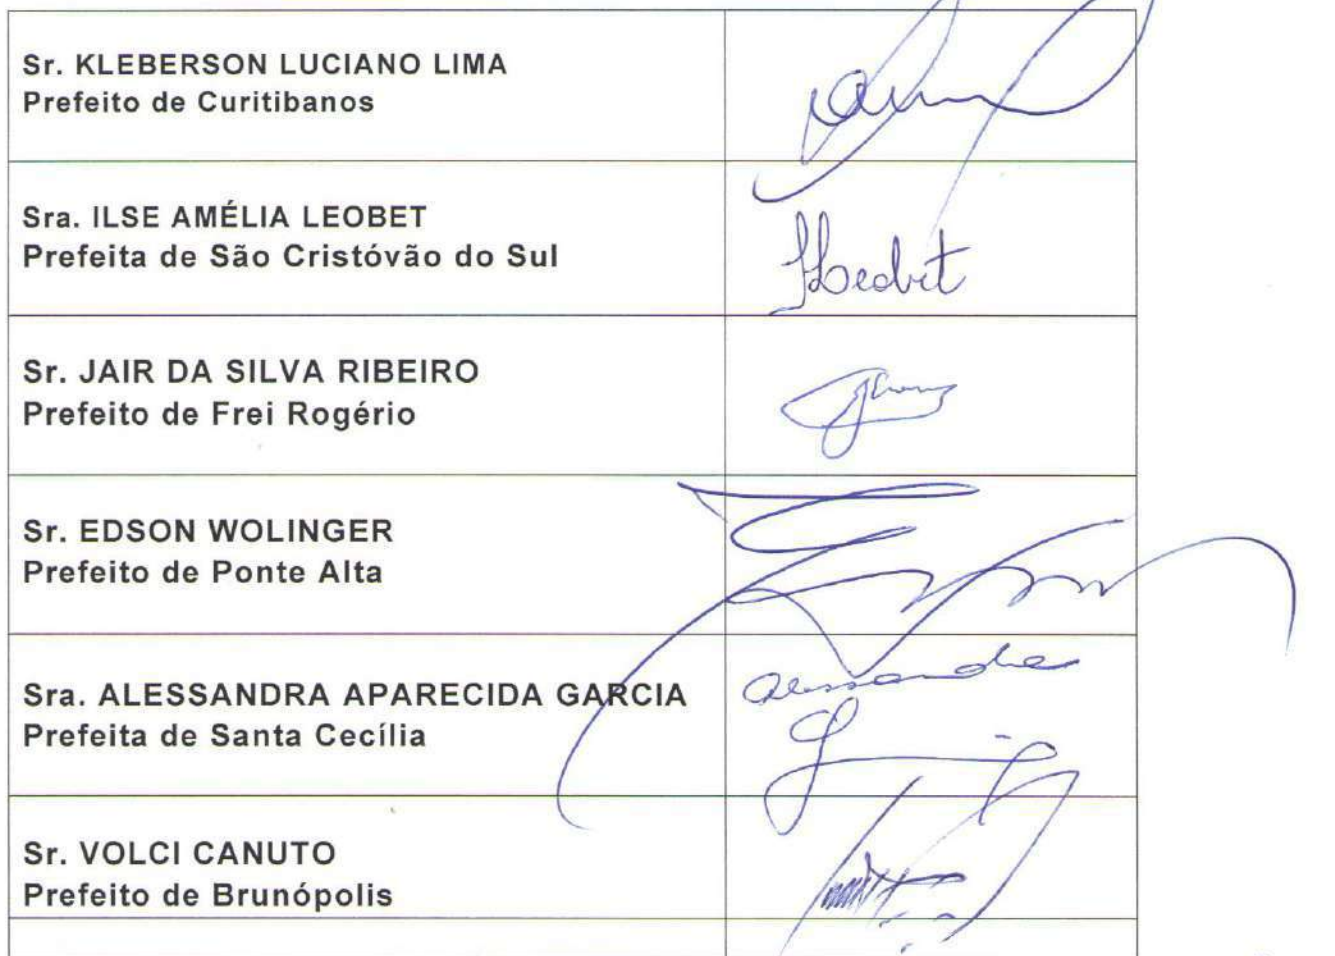 Sr. KLEBERSON LUCIANO LIMA
Prefeito de Curitibanos
Sra. ILSE AMÉLIA LEOBET
Prefeita de São Cristóvão do Sul
Leobet
Sr. JAIR DA SILVA RIBEIRO
Prefeito de Frei Rogério
Sr. EDSON WOLINGER
Prefeito de Ponte Alta
Sra. ALESSANDRA APARECIDA GARCIA
Prefeita de Santa Cecília
Alessandra
Sr. VOLCI CANUTO
Prefeito de Brunópolis